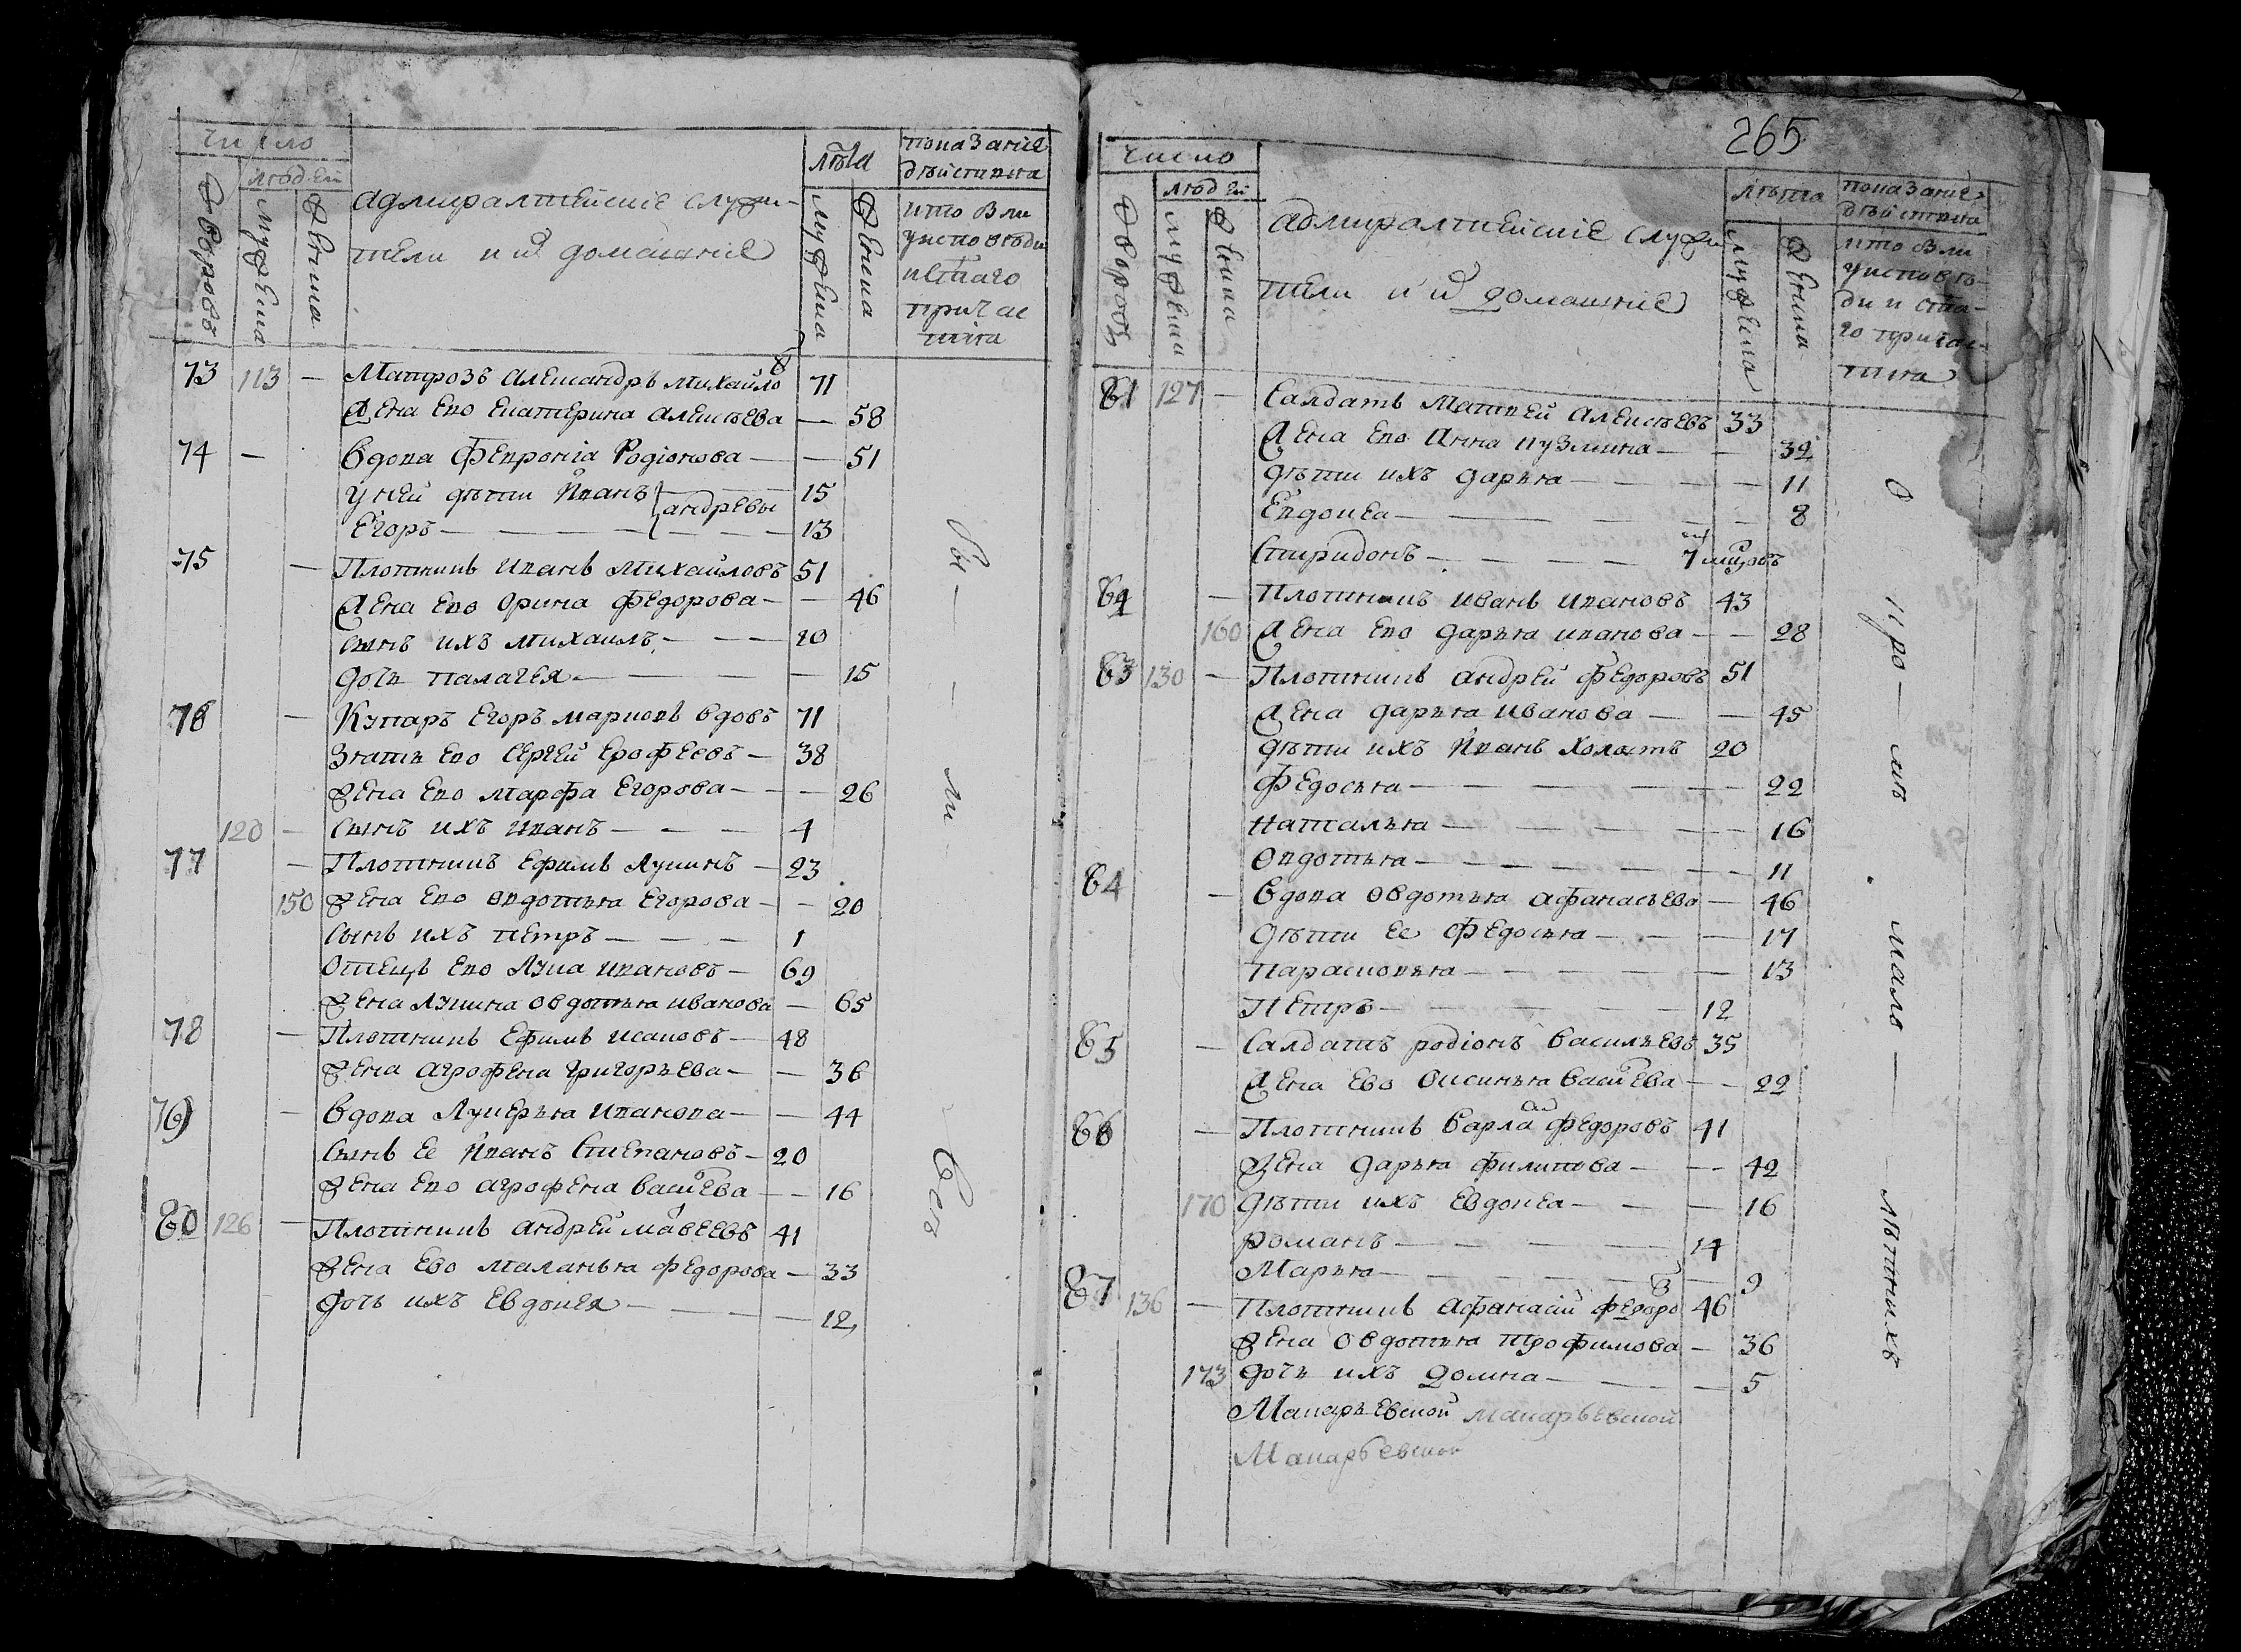 число
людей
дворовъ
мужеска
женска
адмиралтейские служи-
тели и их домашние
лета
мужеска
женска
показание
действия
кто были
у исповеди
и святаго
причас
тия
73 113 — Матрозъ Александръ Михайловъ 71
Жена ево Екатерина Алексѣева — 58
74 — вдова Феврония Родіонова — — 51
у ней дѣти Иванъ 15
андреевы
Егоръ — — — 13
75 — Плотникъ Иванъ Михайловъ 51
Жена ево Орина Федорова — — 46
сынъ ихъ Михаилъ — — — 20
дочь палагея — — — 15
76 — Купаръ Егоръ Марковъ вдовъ 71
Зять ево Сергей Ерофеевъ — 38
жена ево Марфа Егорова — — 26
120 — сынъ ихъ Иванъ — — — 4
77 — Плотникъ Ефимъ Лукинъ — 23
150 жена ево Овдотья Егорова — — 20
сынъ ихъ петръ — — — 1
Отецъ ево Лука Ивановъ — 69
жена Лукина Овдотья Иванова — 65
78 — Плотникъ Ефимъ Исаковъ — 48
жена Агрофена Григорьева — — 36
79 — вдова Лукерья Иванова — — 44
сынъ ее Иванъ Степановъ — 20
жена ево агрофена васильева — — 16
80 126 — Плотникъ андрей матвеевъ 41
жена ево маланья федорова — 33
дочь ихъ Евдокея — — — 12
бы — — ли — всѣ
265
число
людей
дворовъ
мужеска
женска
адмиралтейские служи
тели и их домашние
лѣта
мужеска
женска
показание
действия
кто были
у испове-
ди и свята-
го причас-
тия
81 127 — Салдатъ Матвей Алексѣевъ 33
Жена ево Анна кузмина — — 32
дѣти ихъ дарья — — — 11
Евдокея — — — 8
Спиридонъ — — — 7 мцовъ
82 — Плотникъ Иванъ Ивановъ 43
160 Жена ево дарья иванова — — 28
83 130 — Плотникъ андрей федоровъ 51
Жена дарья иванова — — 45
дѣти ихъ Иванъ холостъ 20
федосья — — — 22
наталья — — — 16
Овдотья — — — 11
84 — вдова Овдотья афанасьева — 46
дѣти ее федосья — — — 17
парасковья — — — 13
Петръ — — — 12
85 — Салдатъ родіонъ васильевъ 35
Жена ево Оксинья васильева — — 22
86 — Плотникъ варлам федоровъ 41
жена дарья филипова — — 42
170 дѣти ихъ Евдокея — — — 16
романъ — — — 14
Марья — — — 9
87 136 — Плотникъ афанасий федоровъ 46
жена Овдотья трофимова — 36
173 дочь ихъ домна — — — 5
Макарьевской макарьевской
Макарьевской
о кро — мѣ малолѣтнихъ